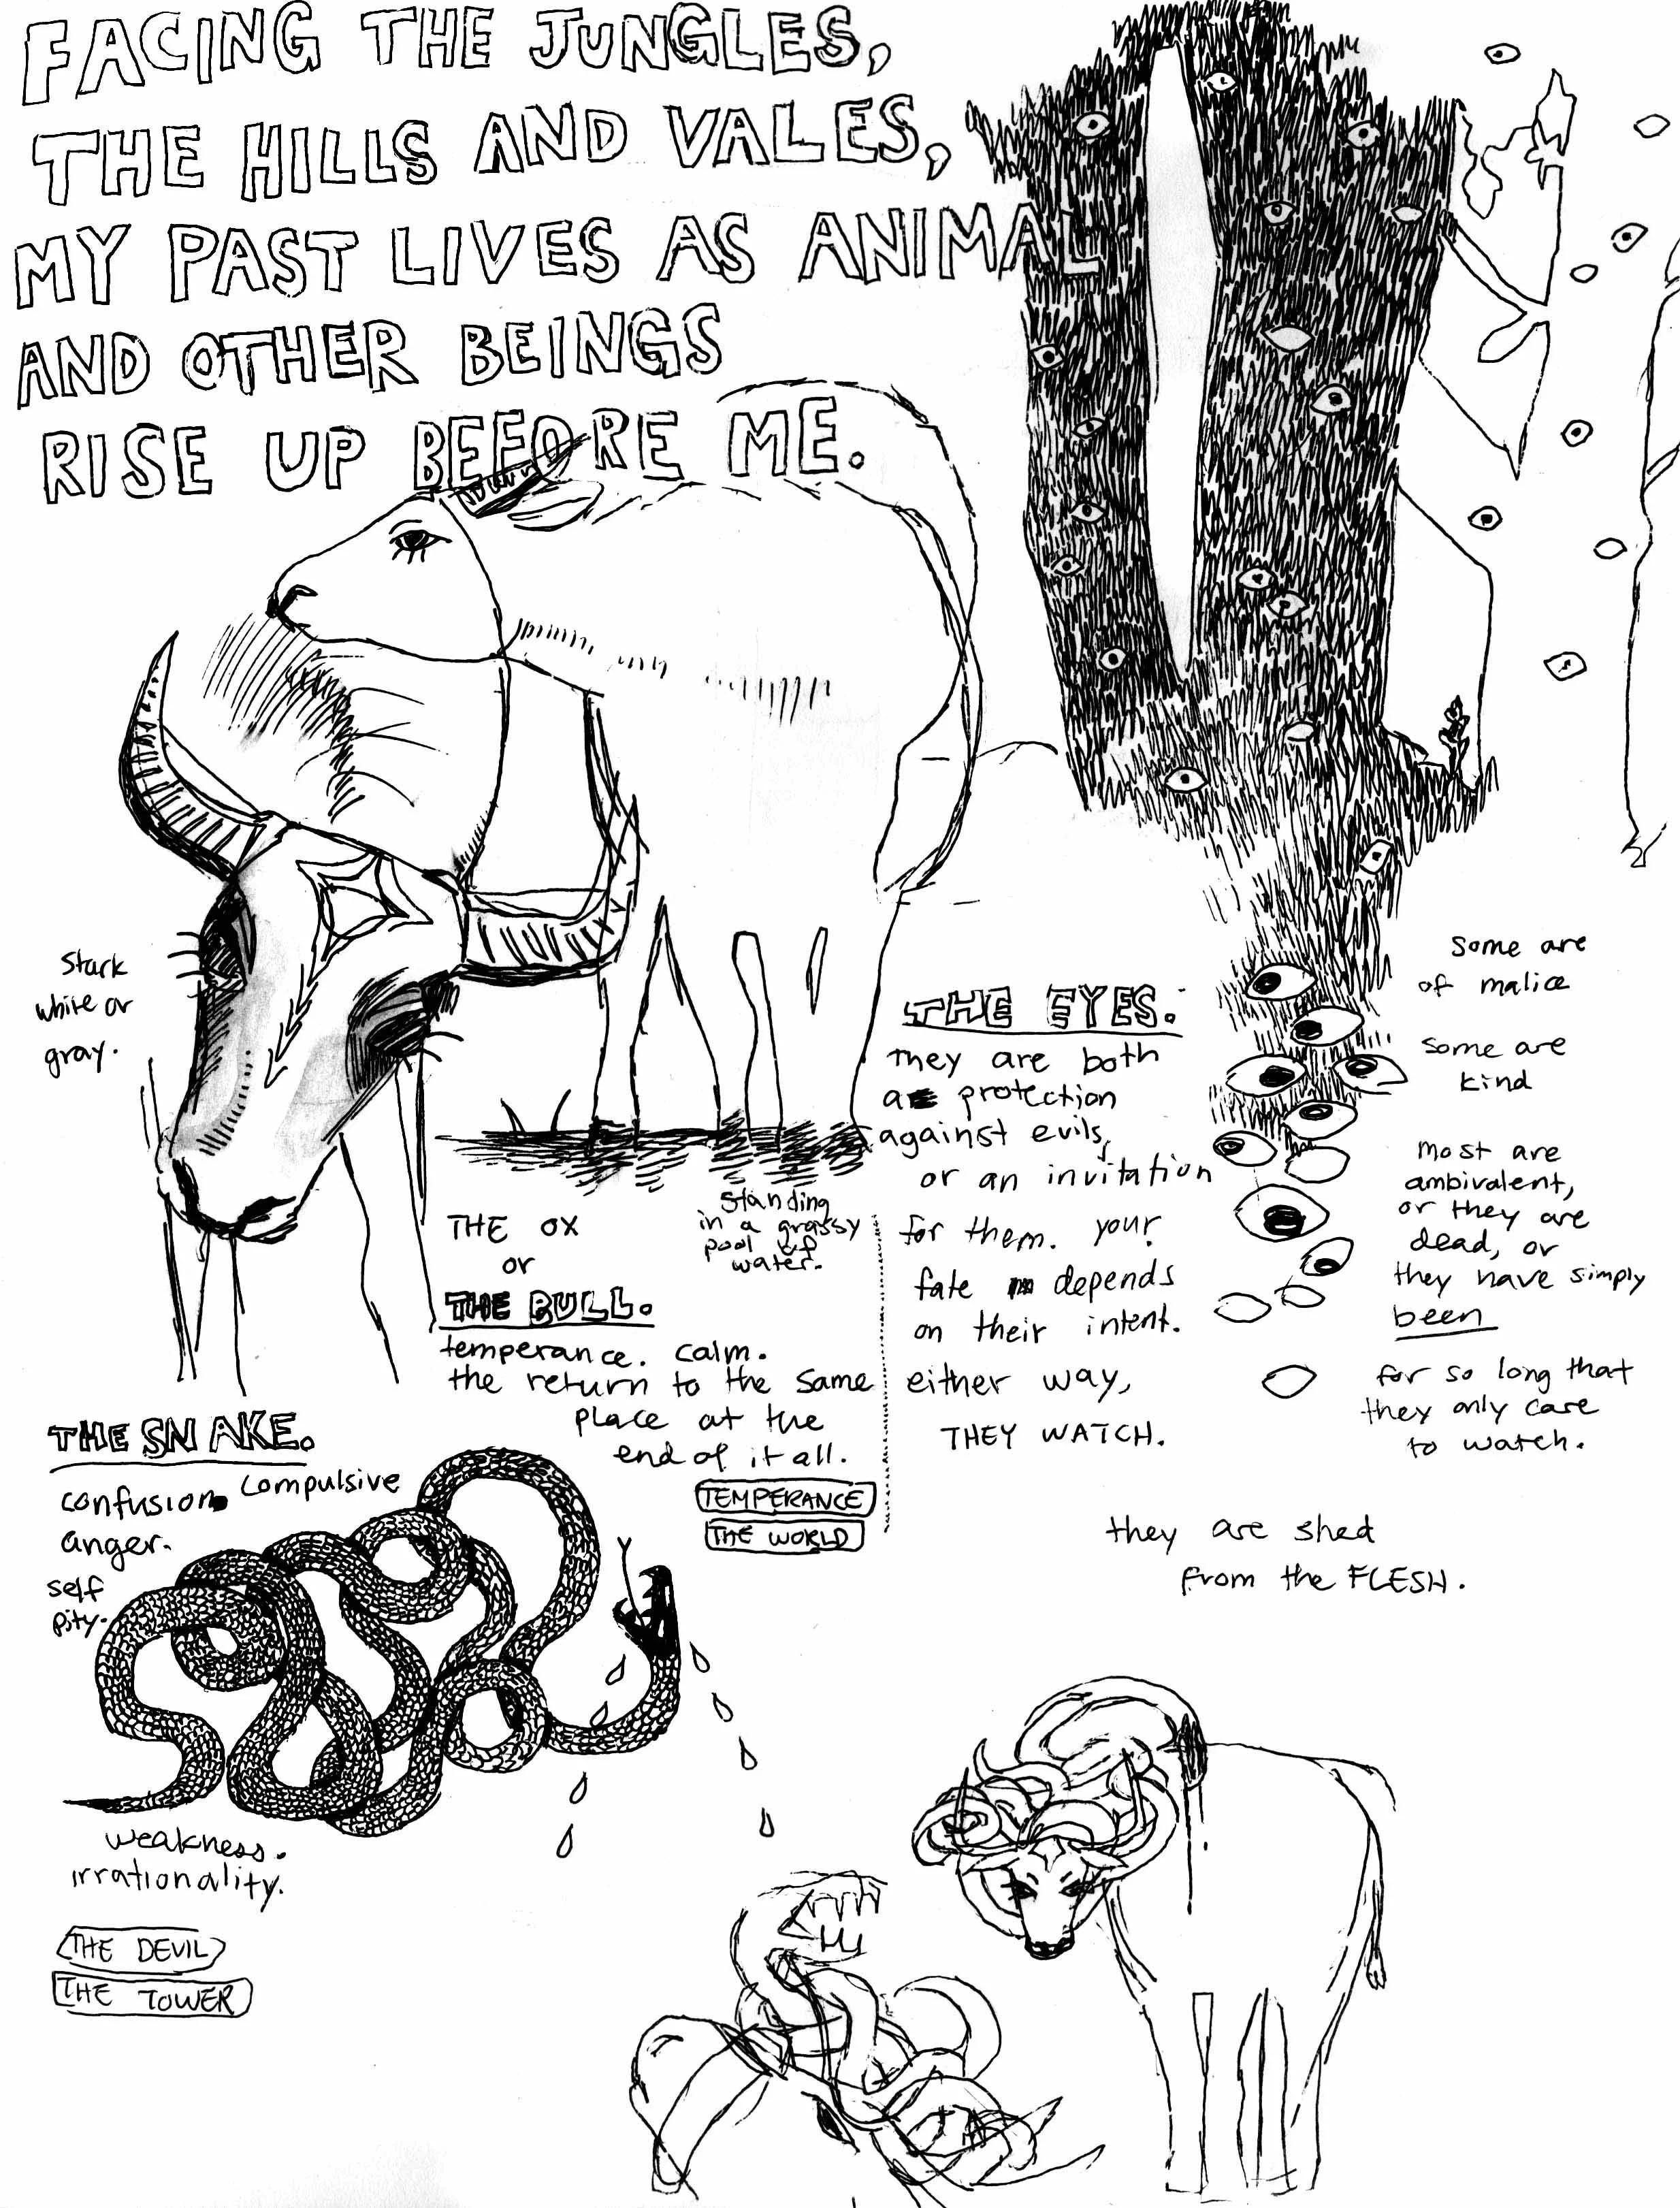 FACING THE JUNGLES,
THE HILLS AND VALES,
MY PAST LIVES AS ANIMAL
AND OTHER BEINGS
RISE UP BEFORE ME.
Stark
white or
gray.
THE OX
or
THE BULL.
temperance. calm.
the return to the same
place at the
end of it all.
TEMPERANCE
THE WORLD
Standing
in a grassy
pool of
water.
THE EYES:
they are both
a protection
against evils,
or an invitation
for them. your
fate depends
on their intent.
either way,
THEY WATCH.
Some are
of malice
Some are
kind
most are
ambivalent,
or they are
dead, or
they have simply
been
for so long that
they only care
to watch.
they are shed
from the FLESH.
THE SNAKE.
confusion. compulsive
anger.
self
pity.
weakness.
irrationality.
THE DEVIL
THE TOWER